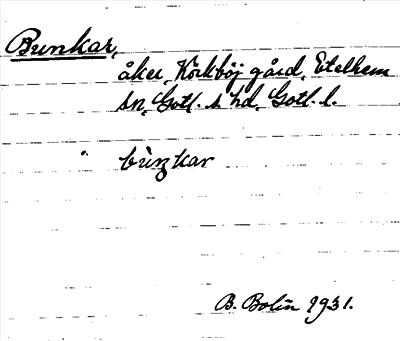 Bunkar,
åker, Körkböj gård, Etelhem
sn, Gotl. s hd, Gotl. l.
bùŋkar
B. Bolin 1931.